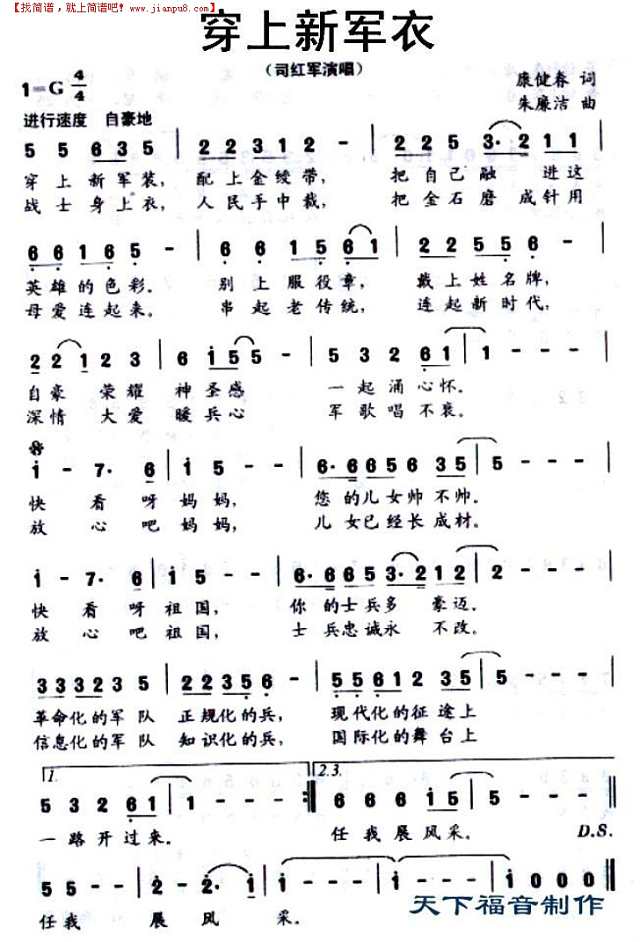 【找简谱，就上简谱吧！www.jianpu8.com】
穿上新军衣
（司红军演唱）
1=G 4/4
康健春 词
朱廉洁 曲
进行速度 自豪地
5 5 6 3 5 | 2 2 3 1 2 - | 2 2 5 3· 2 1 1 |
穿 上 新 军 装， 配 上 金 绶 带， 把 自 己 融 进 这
战 士 身 上 衣， 人 民 手 中 裁， 把 金 石 磨 成 针 用
6 6 1 6 5 - | 6 6 1 5 6 6 1 | 2 2 5 5 6 - |
英 雄 的 色 彩。 别 上 服 役 章， 戴 上 姓 名 牌，
母 爱 连 起 来。 串 起 老 传 统， 连 起 新 时 代，
2 2 1 2 3 2 3 | 6 6 i 5 5 - | 5 3 2 6 1 | 1 - - - |
自 豪 荣 耀 神 圣 感 一 起 涌 心 怀。
深 情 大 爱 暖 兵 心 军 歌 唱 不 衰。
i - 7· 6 | i 5 5 - | 6· 6 6 5 6 3 5 | 5 - - - |
快 看 呀 妈 妈， 您 的 儿 女 帅 不 帅。
放 心 吧 妈 妈， 儿 女 已 经 长 成 材。
i - 7· 6 | i 5 5 - | 6· 6 6 5 3· 2 1 2 | 2 - - - |
快 看 呀 祖 国， 你 的 士 兵 多 豪 迈。
放 心 吧 祖 国， 士 兵 忠 诚 永 不 改。
3 3 3 3 2 3 5 | 2 2 3 5 6 - | 5 5 6 1 2 3 5 | 5 - - - |
革命化的军 队 正规化的兵， 现代化的征 途上
信息化的军 队 知识化的兵， 国际化的舞 台上
1. 2.3.
5 3 2 6 1 | 1 - - - :‖ 6 6 6 i 5 | 5 - - - |
一 路 开 过 来。 任 我 展 风 采。 D.S.
5 5 - - | 2 - 2· i | i - - - | i - - - | i 0 0 0 ‖
任 我 展 风 采。
天下福音制作